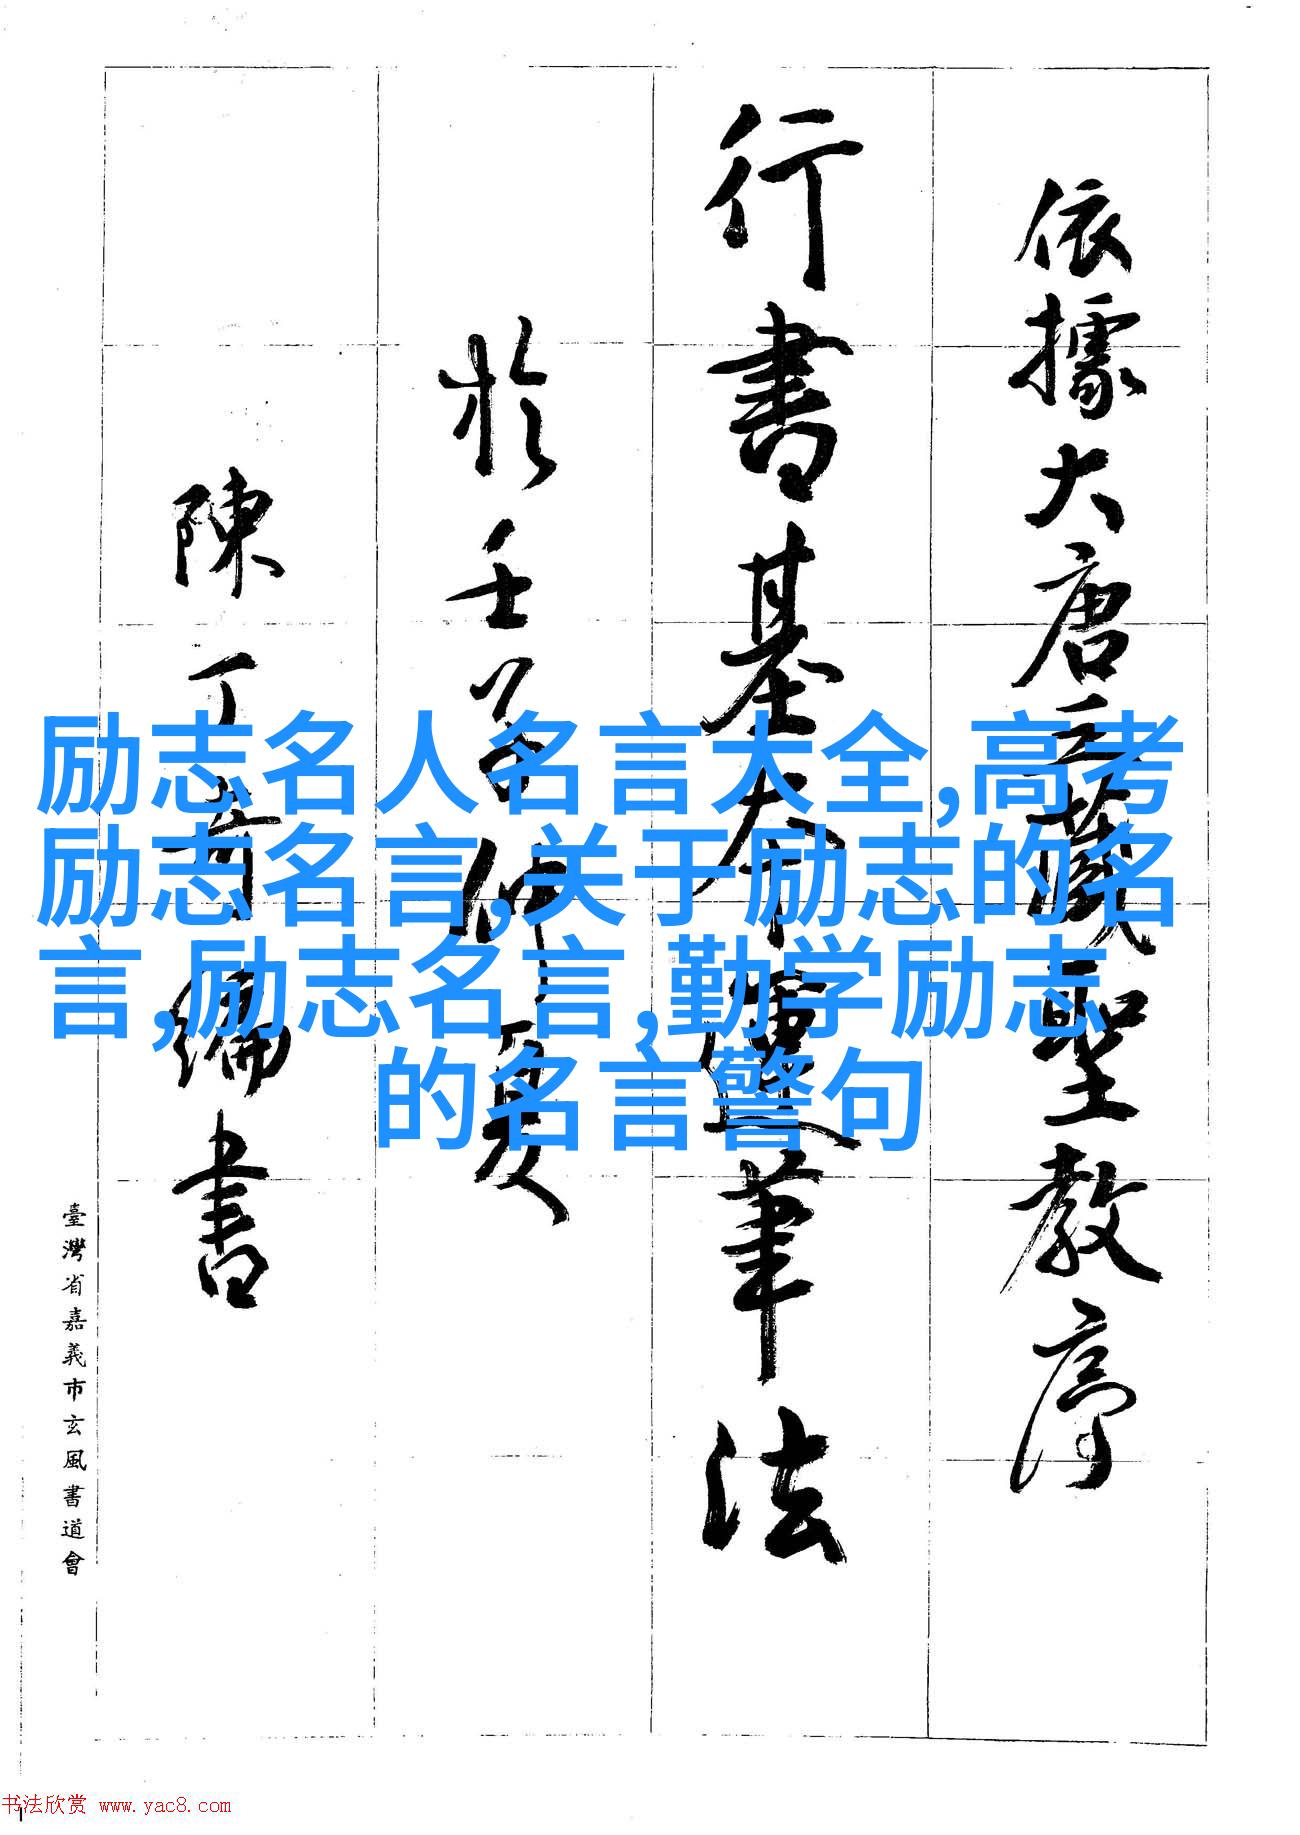 依據大唐三藏聖教序
行書基本運筆法
於壬子仲夏
陳丁奇編書
臺灣省嘉義市玄風書道會
励志名人名言大全,高考
励志名言,关于励志的名
言,励志名言,勤学励志
的名言警句
书法欣赏 www.yac8.com